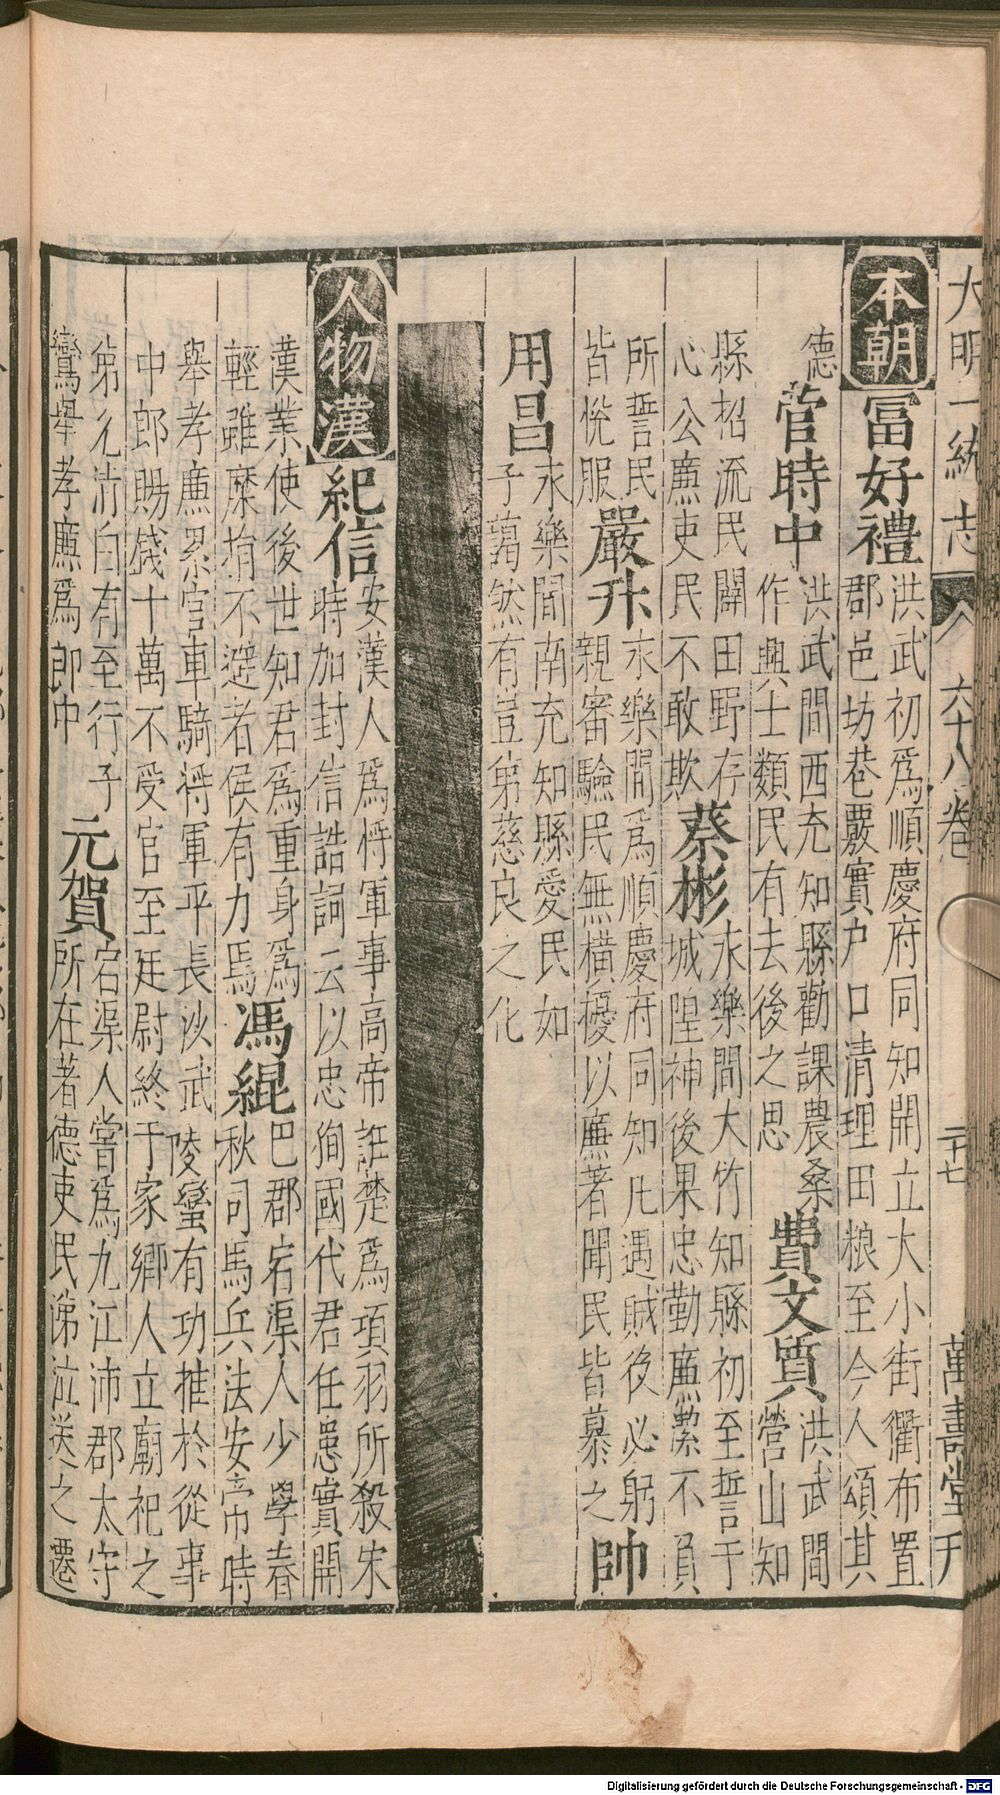 大明一統志 六十八卷 二十七 萬壽堂刊
本朝 冨好禮 洪武初爲順慶府同知開立大小街衢布置
郡邑坊巷覈實户口清理田粮至今人頌其
德 菅時中 洪武間西充知縣勸課農桑
作興士類民有去後之思 費文質 洪武間
營山知
縣招流民闢田野存
心公廉吏民不敢欺 蔡彬 永樂間大竹知縣初至誓于
城隍神後果忠勤廉潔不負
所誓民
皆悅服 嚴升 永樂間爲順慶府同知凡遇賊役必躬
親審驗民無橫擾以廉著聞民皆慕之 帥
用昌 永樂間南充知縣愛民如
子藹然有豈弟慈良之化
人物 漢 紀信 安漢人爲將軍事高帝誑楚爲項羽所殺宋
時加封信誥詞云以忠徇國代君任患實開
漢業使後世知君爲重身爲
輕雖糜捐不避者侯有力焉 馮緄 巴郡宕渠人少學春
秋司馬兵法安帝時
舉孝廉累官車騎將軍平長沙武陵蠻有功推於從事
中郎賜錢十萬不受官至廷尉終于家鄉人立廟祀之
弟允清白有至行子
鸞舉孝廉爲郎中 元賀 宕渠人嘗爲九江沛郡太守
所在著德吏民涕泣送之遷
Digitalisierung gefördert durch die Deutsche Forschungsgemeinschaft - DFG